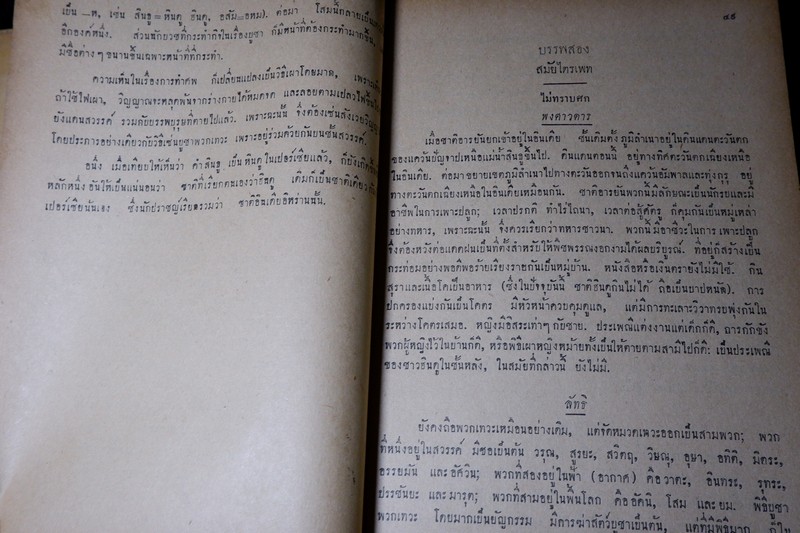 เป็น -ห, เช่น สินธู = หินดู ฮินดู, อสัม=อหม). ต่อมา โสมนี้กลายเป็น
อีกองค์หนึ่ง. ส่วนนักบวชที่กระทำกิจในเรื่องบูชา ก็มีหน้าที่ต้องกระทำมากขึ้น
มีชื่อต่าง ๆ ขนานขึ้นเฉพาะหน้าที่ที่กระทำ.
ความเห็นในเรื่องการทำศพ ก็เปลี่ยนแปลงเป็นวิธีเผาโดยมาก, เพราะ
ถ้าใช้ไฟเผา, วิญญาณจะหลุดพ้นจากร่างกายได้หมดจด และลอยตามเปลวไฟขึ้น
ยังแดนสวรรค์ รวมกับบรรพบุรุษที่ตายไปแล้ว. เพราะฉะนั้น จึงต้องเซ่นสังเวย
โดยประการอย่างเดียวกับวิธีเซ่นบูชาพวกเทวะ เพราะอยู่ร่วมด้วยกันบนชั้นสวรรค์.
อนึ่ง เมื่อเทียบให้เห็นว่า คำ สินธู เป็น หินดู ในเปอร์เซียแล้ว, ก็ยัง
หลักหนึ่ง อันให้เป็นแน่นอนว่า ชาติที่เรียกตนเองว่าฮินดู เดิมก็เป็นชาติเดียวกับ
เปอร์เซียนั่นเอง ซึ่งนักปราชญ์เรียกรวมว่า ชาติอินเดียอิหร่านนั้น.
๔๕
บรรพสอง
สมัยไตรเพท
ไม่ทราบศก
พงศาวดาร
เมื่อชาติอารยันยกเข้าอยู่ในอินเดีย ชั้นเดิมตั้งภูมิลำเนาอยู่ในดินแดนตะวันตก
ของแคว้นบัญจาปเหนือแม่น้ำสินธูขึ้นไป. ดินแดนตอนนี้ อยู่ทางทิศตะวันตกเฉียงเหนือ
ในอินเดีย. ต่อมาขยายเขตภูมิลำเนาไปทางตะวันออกจนถึงแคว้นอัษฎาลและทุ่งกุรุ อยู่
ทางตะวันตกเฉียงเหนือในอินเดียเหมือนกัน. ชาติอารยันพวกนี้มีลักษณะเป็นนักรบและมี
อาชีพในการเพาะปลูก; เวลาปรกติ ทำไร่ไถนา, เวลาต่อสู้ศัตรู ก็คุมกันเป็นหมู่เหล่า
อย่างทหาร, เพราะฉะนั้น จึงควรเรียกว่าทหารชาวนา. พวกนี้มีอาชีวะในการเพาะปลูก
จึงต้องหวังต่อแดดฝนเป็นที่ตั้งสำหรับให้พืชพรรณงอกงามได้ผลบริบูรณ์. ที่อยู่ก็สร้างเป็น
กระท่อมอย่างพอดีพอร้ายเรียงรายกันเป็นหมู่บ้าน. หนังสือหรือเงินตรายังไม่มีใช้. กิน
สุราและเนื้อโคเป็นอาหาร (ซึ่งในปัจจุบันนี้ ชาติฮินดูกินไม่ได้ ถือเป็นบาปหนัก). การ
ปกครองแบ่งกันเป็นโคตร มีหัวหน้าควบคุมดูแล, แต่มีการทะเลาะวิวาทรบพุ่งกันใน
ระหว่างโคตรเสมอ. หญิงมีอิสระเท่า ๆ กับชาย. ประเพณีแต่งงานแต่เด็กก็ดี, การกักขัง
พวกผู้หญิงไว้ในบ้านก็ดี, หรือพิธีเผาหญิงหม้ายทั้งเป็นให้ตายตามสามีไปก็ดี: เป็นประเพณี
ของชาวฮินดูในชั้นหลัง, ในสมัยที่กล่าวนี้ ยังไม่มี.
ลัทธิ
ยังคงถือพวกเทวะเหมือนอย่างเดิม, แต่จัดหมวดเฉพาะออกเป็นสามพวก; พวก
ที่หนึ่งอยู่ในสวรรค์ มีชื่อเป็นต้น วรุณ, สูรยะ, สวิตฤ, วิษณุ, อุษา, อทิติ, มิตระ,
อรรยมัน และ อัศวิน; พวกที่สองอยู่ในฟ้า (อากาศ) คือ วาตะ, อินทระ, รุทระ,
ปรรชันยะ และ มารุต; พวกที่สามอยู่ในพื้นโลก คือ อัคนิ, โสม และ ยม. พิธีบูชา
พวกเทวะ โดยมากเป็นยัญกรรม มีการฆ่าสัตว์บูชาเป็นต้น, แต่ที่มีพิธีมาก ก็ใน